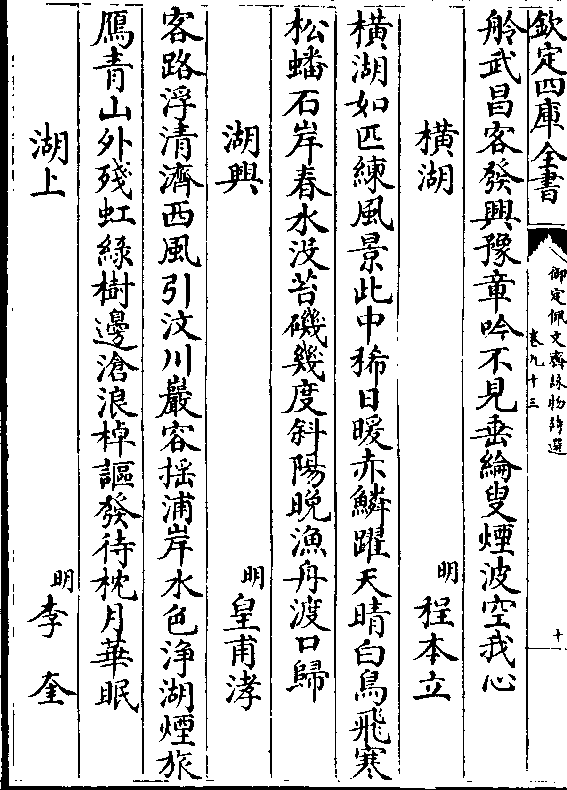 欽定四庫全書
御定佩文齋詠物詩選
卷九十三
十
舲武昌客發興豫章吟不見垂綸叟煙波空我心
橫湖
明
程本立
橫湖如匹練風景此中稀日暖赤鱗躍天晴白鳥飛寒
松蟠石岸春水没苔磯幾度斜陽晚漁舟渡口歸
湖興
明
皇甫涍
客路浮清濟西風引汶川巖容揺浦岸水色浄湖煙旅
鴈青山外殘虹綠樹邊滄浪棹謳發待枕月華眠
湖上
明
李奎